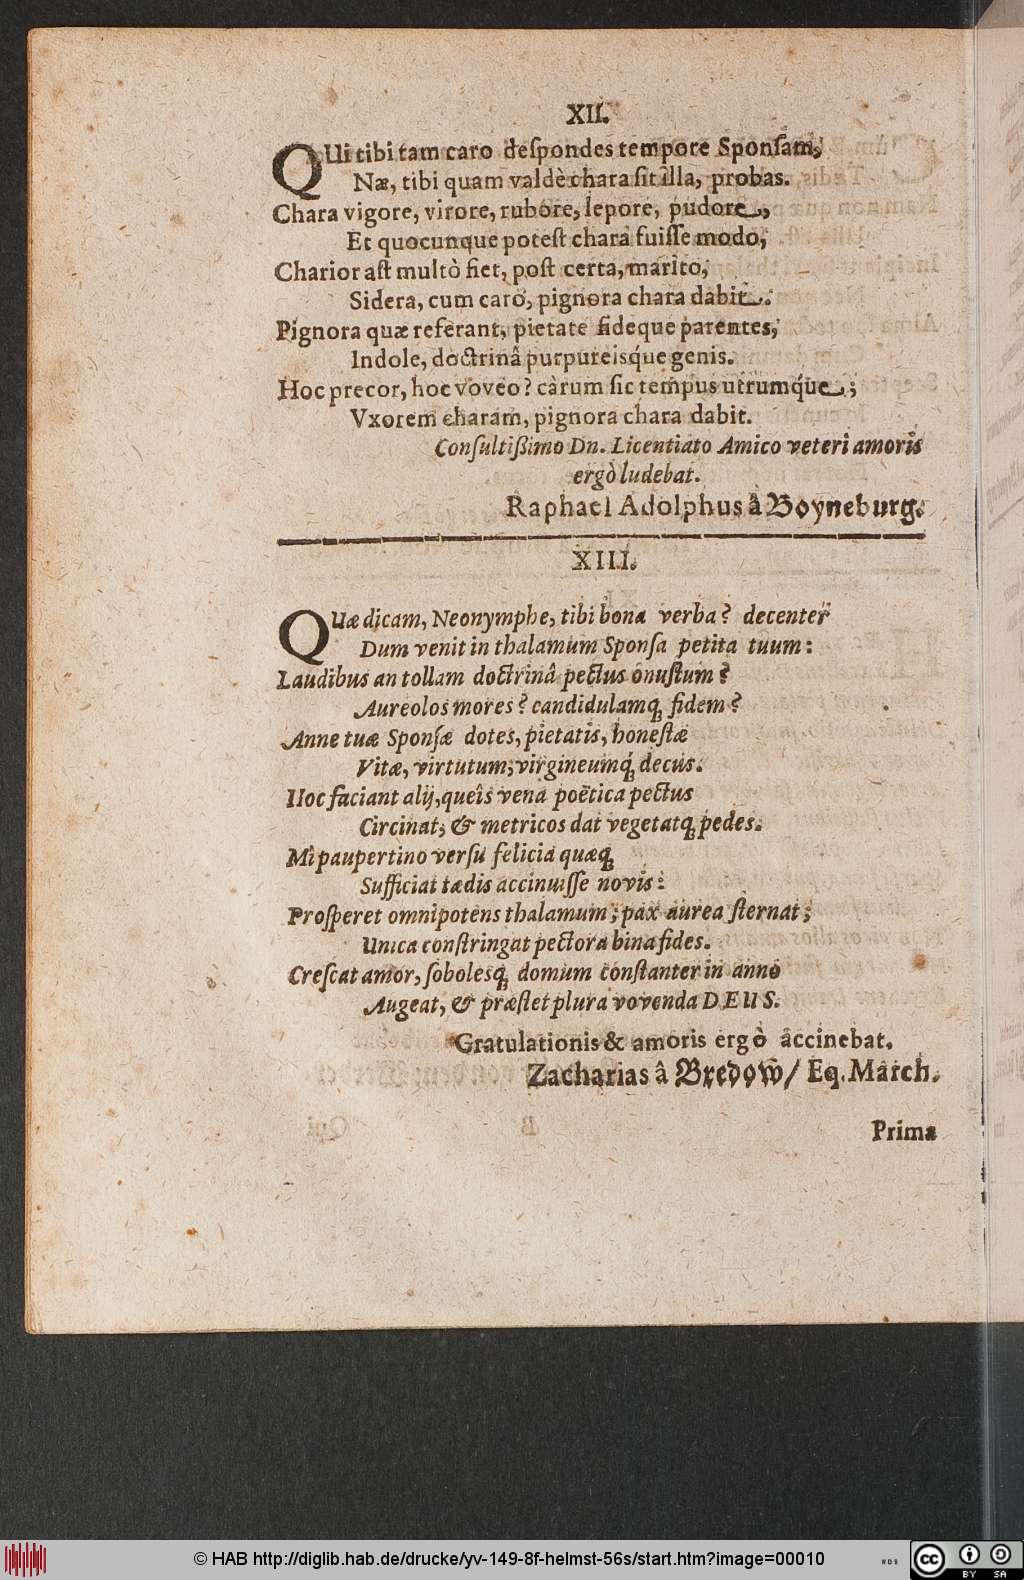 XII.
QUi tibi tam caro despondes tempore Sponsam,
Næ, tibi quam valdè chara sit illa, probas.
Chara vigore, virore, rubore, lepore, pudore,
Et quocunque potest chara fuisse modo,
Charior ast multò fiet, post certa, marito,
Sidera, cum caro, pignora chara dabit.
Pignora quæ referant, pietate fideque parentes,
Indole, doctrinâ purpureisq́ue genis.
Hoc precor, hoc voveo? càrum sic tempus utrumq́ue;
Vxorem charam, pignora chara dabit.
Consultißimo Dn. Licentiato Amico veteri amoris
ergò ludebat.
Raphael Adolphus â Boyneburg.
XIII.
QUæ dicam, Neonymphe, tibi bona verba? decenter
Dum venit in thalamum Sponsa petita tuum:
Laudibus an tollam doctrinâ pectus onustum?
Aureolos mores? candidulamq; fidem?
Anne tuæ Sponsæ dotes, pietatis, honestæ
Vitæ, virtutum, virgineumq́; decus.
Hoc faciant alij, queîs vena poëtica pectus
Circinat, & metricos dat vegetatq; pedes.
Mî paupertino versu felicia quæq;
Sufficiat tædis accinuisse novis:
Prosperet omnipotens thalamum; pax aurea sternat;
Unica constringat pectora bina fides.
Crescat amor, sobolesq; domum constanter in anno
Augeat, & præstet plura vovenda DEUS.
Gratulationis & amoris ergò accinebat.
Zacharias â Bredow/ Eq. March.
Prima
© HAB http://diglib.hab.de/drucke/yv-149-8f-helmst-56s/start.htm?image=00010
WDB
cc BY SA